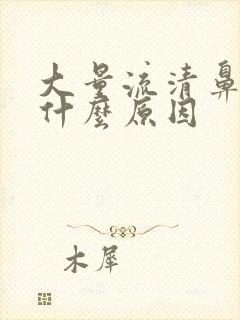 大量流清鼻
什麼原因
木犀